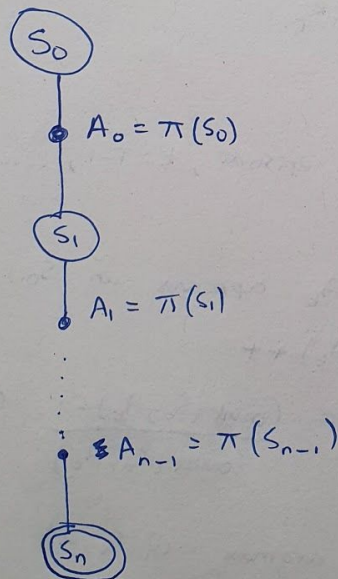 S₀
A₀ = π(S₀)
S₁
A₁ = π(S₁)
Aₙ₋₁ = π(Sₙ₋₁)
Sₙ